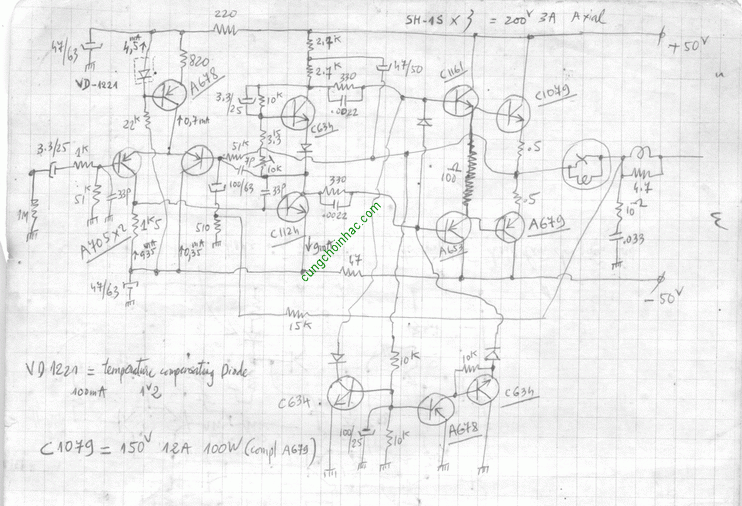 220
SH-1S X 3 = 200V 3A Axial
47/63
4,5 mA
820
VD-1221
A678
2.7K
2.7K
47/50
330
.0022
C1161
C1079
+50V
3.3/25
10K
C634
0,7mA
22K
3.3K
.5
3.3/25
1K
51K
10K
100Ω
51K
33P
100/63
33P
330
.0022
.5
4.7
1M
1K5
510
C1124
A653
A679
10Ω
.033
A705x2
0,35 mA
9mA
47
47/63
-50V
15K
cungchoinhac.com
VD1221 = temperature compensating Diode
100mA 1V2
10K
10K
C634
C634
100/25
10K
A678
C1079 = 150V 12A 100W (compl A679)